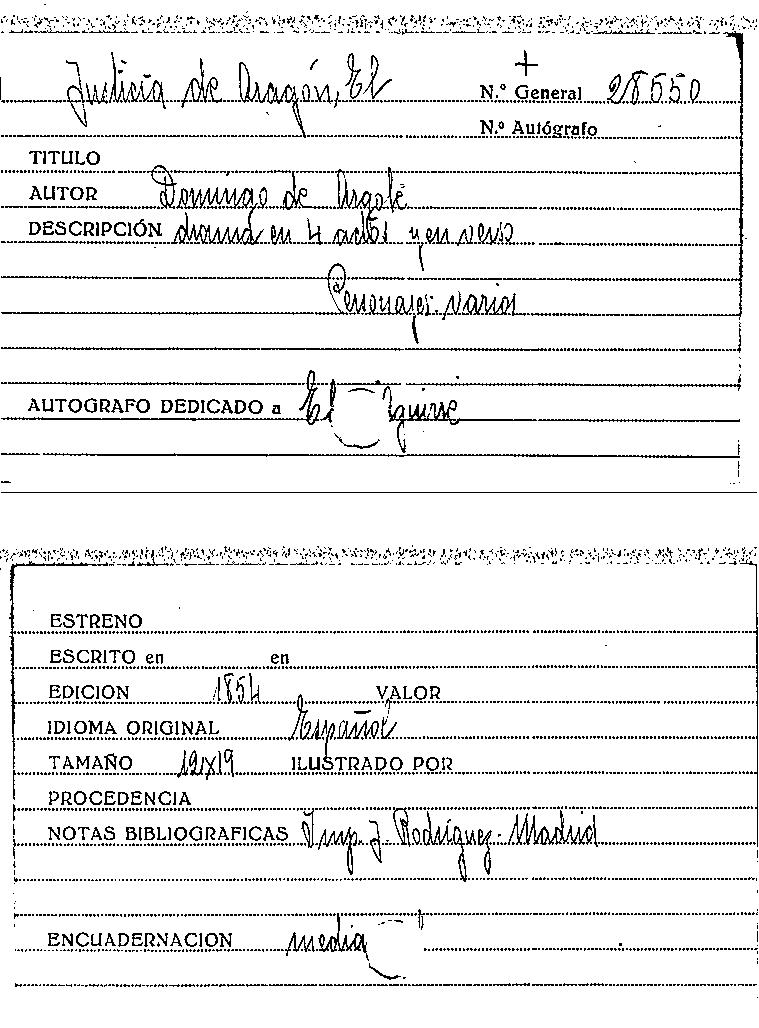 Justicia de Aragón, El
+
N.º General 28550
N.º Autógrafo
TITULO
AUTOR Domingo de Argote
DESCRIPCIÓN drama en 4 actos y en verso
Personajes. varios
AUTOGRAFO DEDICADO a El
ESTRENO
ESCRITO en en
EDICION 1854 VALOR
IDIOMA ORIGINAL Español
TAMAÑO 12x19 ILUSTRADO POR
PROCEDENCIA
NOTAS BIBLIOGRAFICAS Imp. J. Rodríguez. Madrid
ENCUADERNACION media